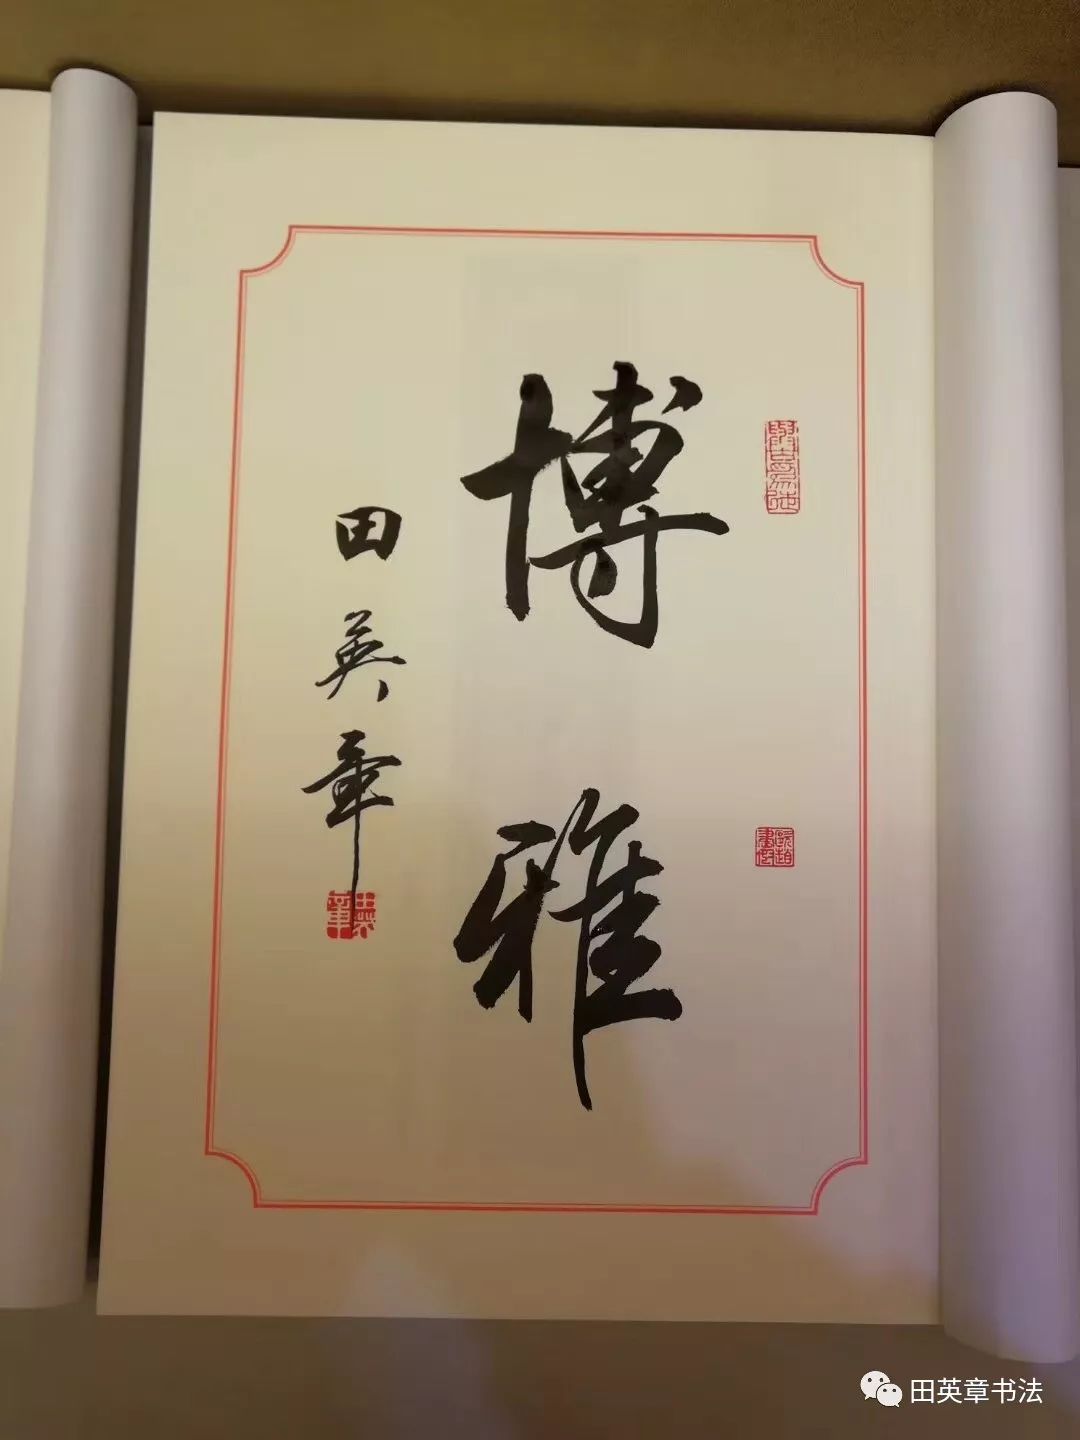 博雅
田英章
田英章书法